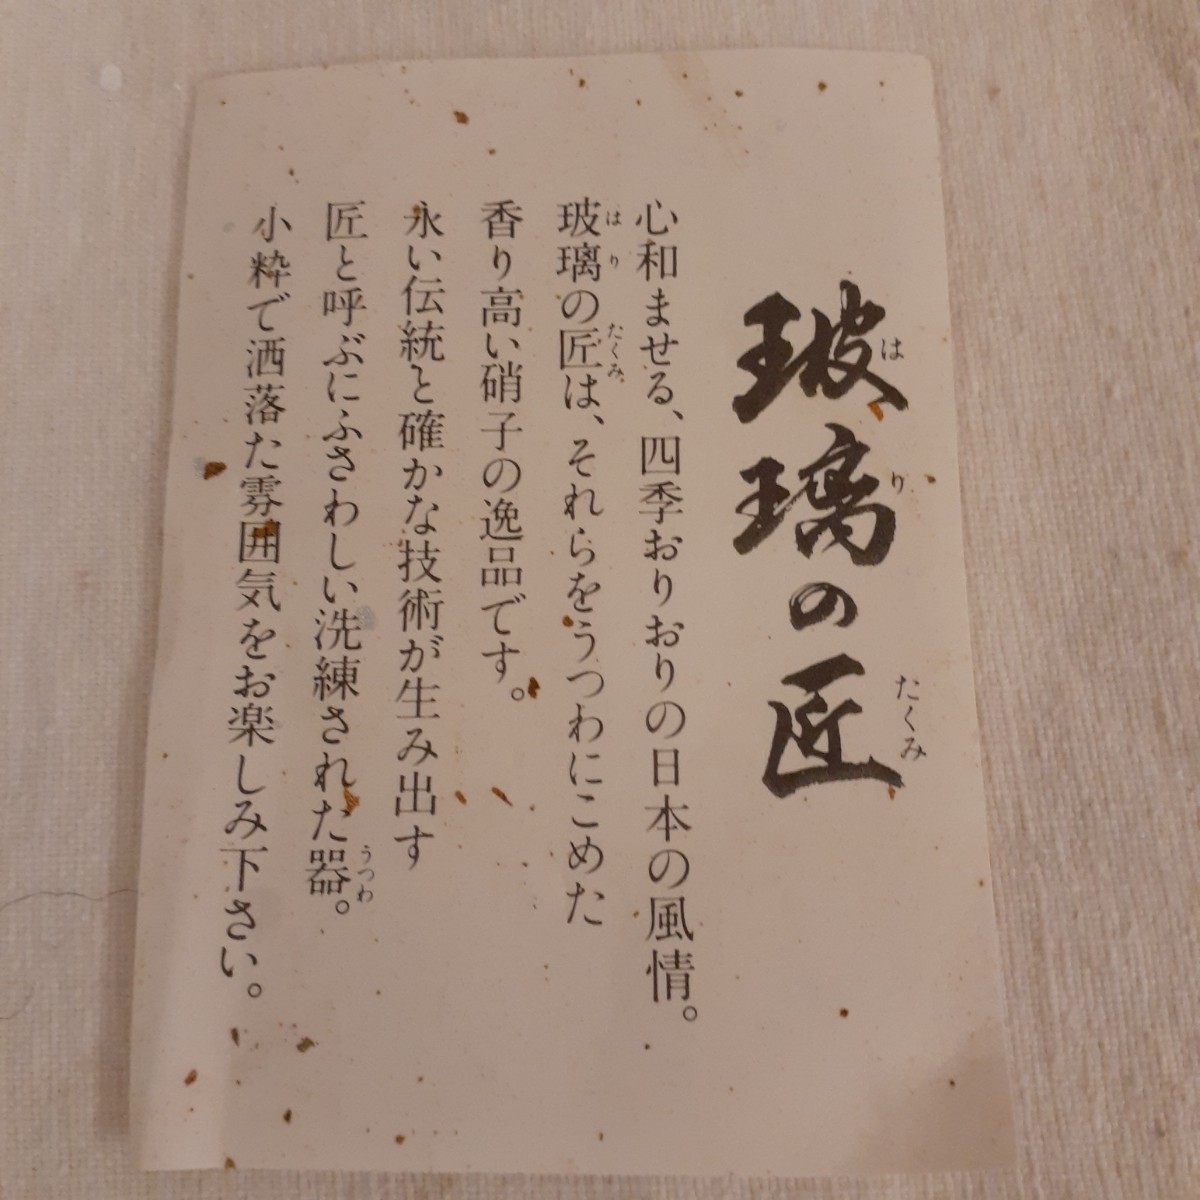 玻璃の匠
はり
たくみ
心和ませる、四季おりおりの日本の風情。
玻璃の匠は、それらをうつわにこめた
はり
たくみ
香り高い硝子の逸品です。
永い伝統と確かな技術が生み出す
匠と呼ぶにふさわしい洗練された器。
うつわ
小粋で洒落た雰囲気をお楽しみ下さい。